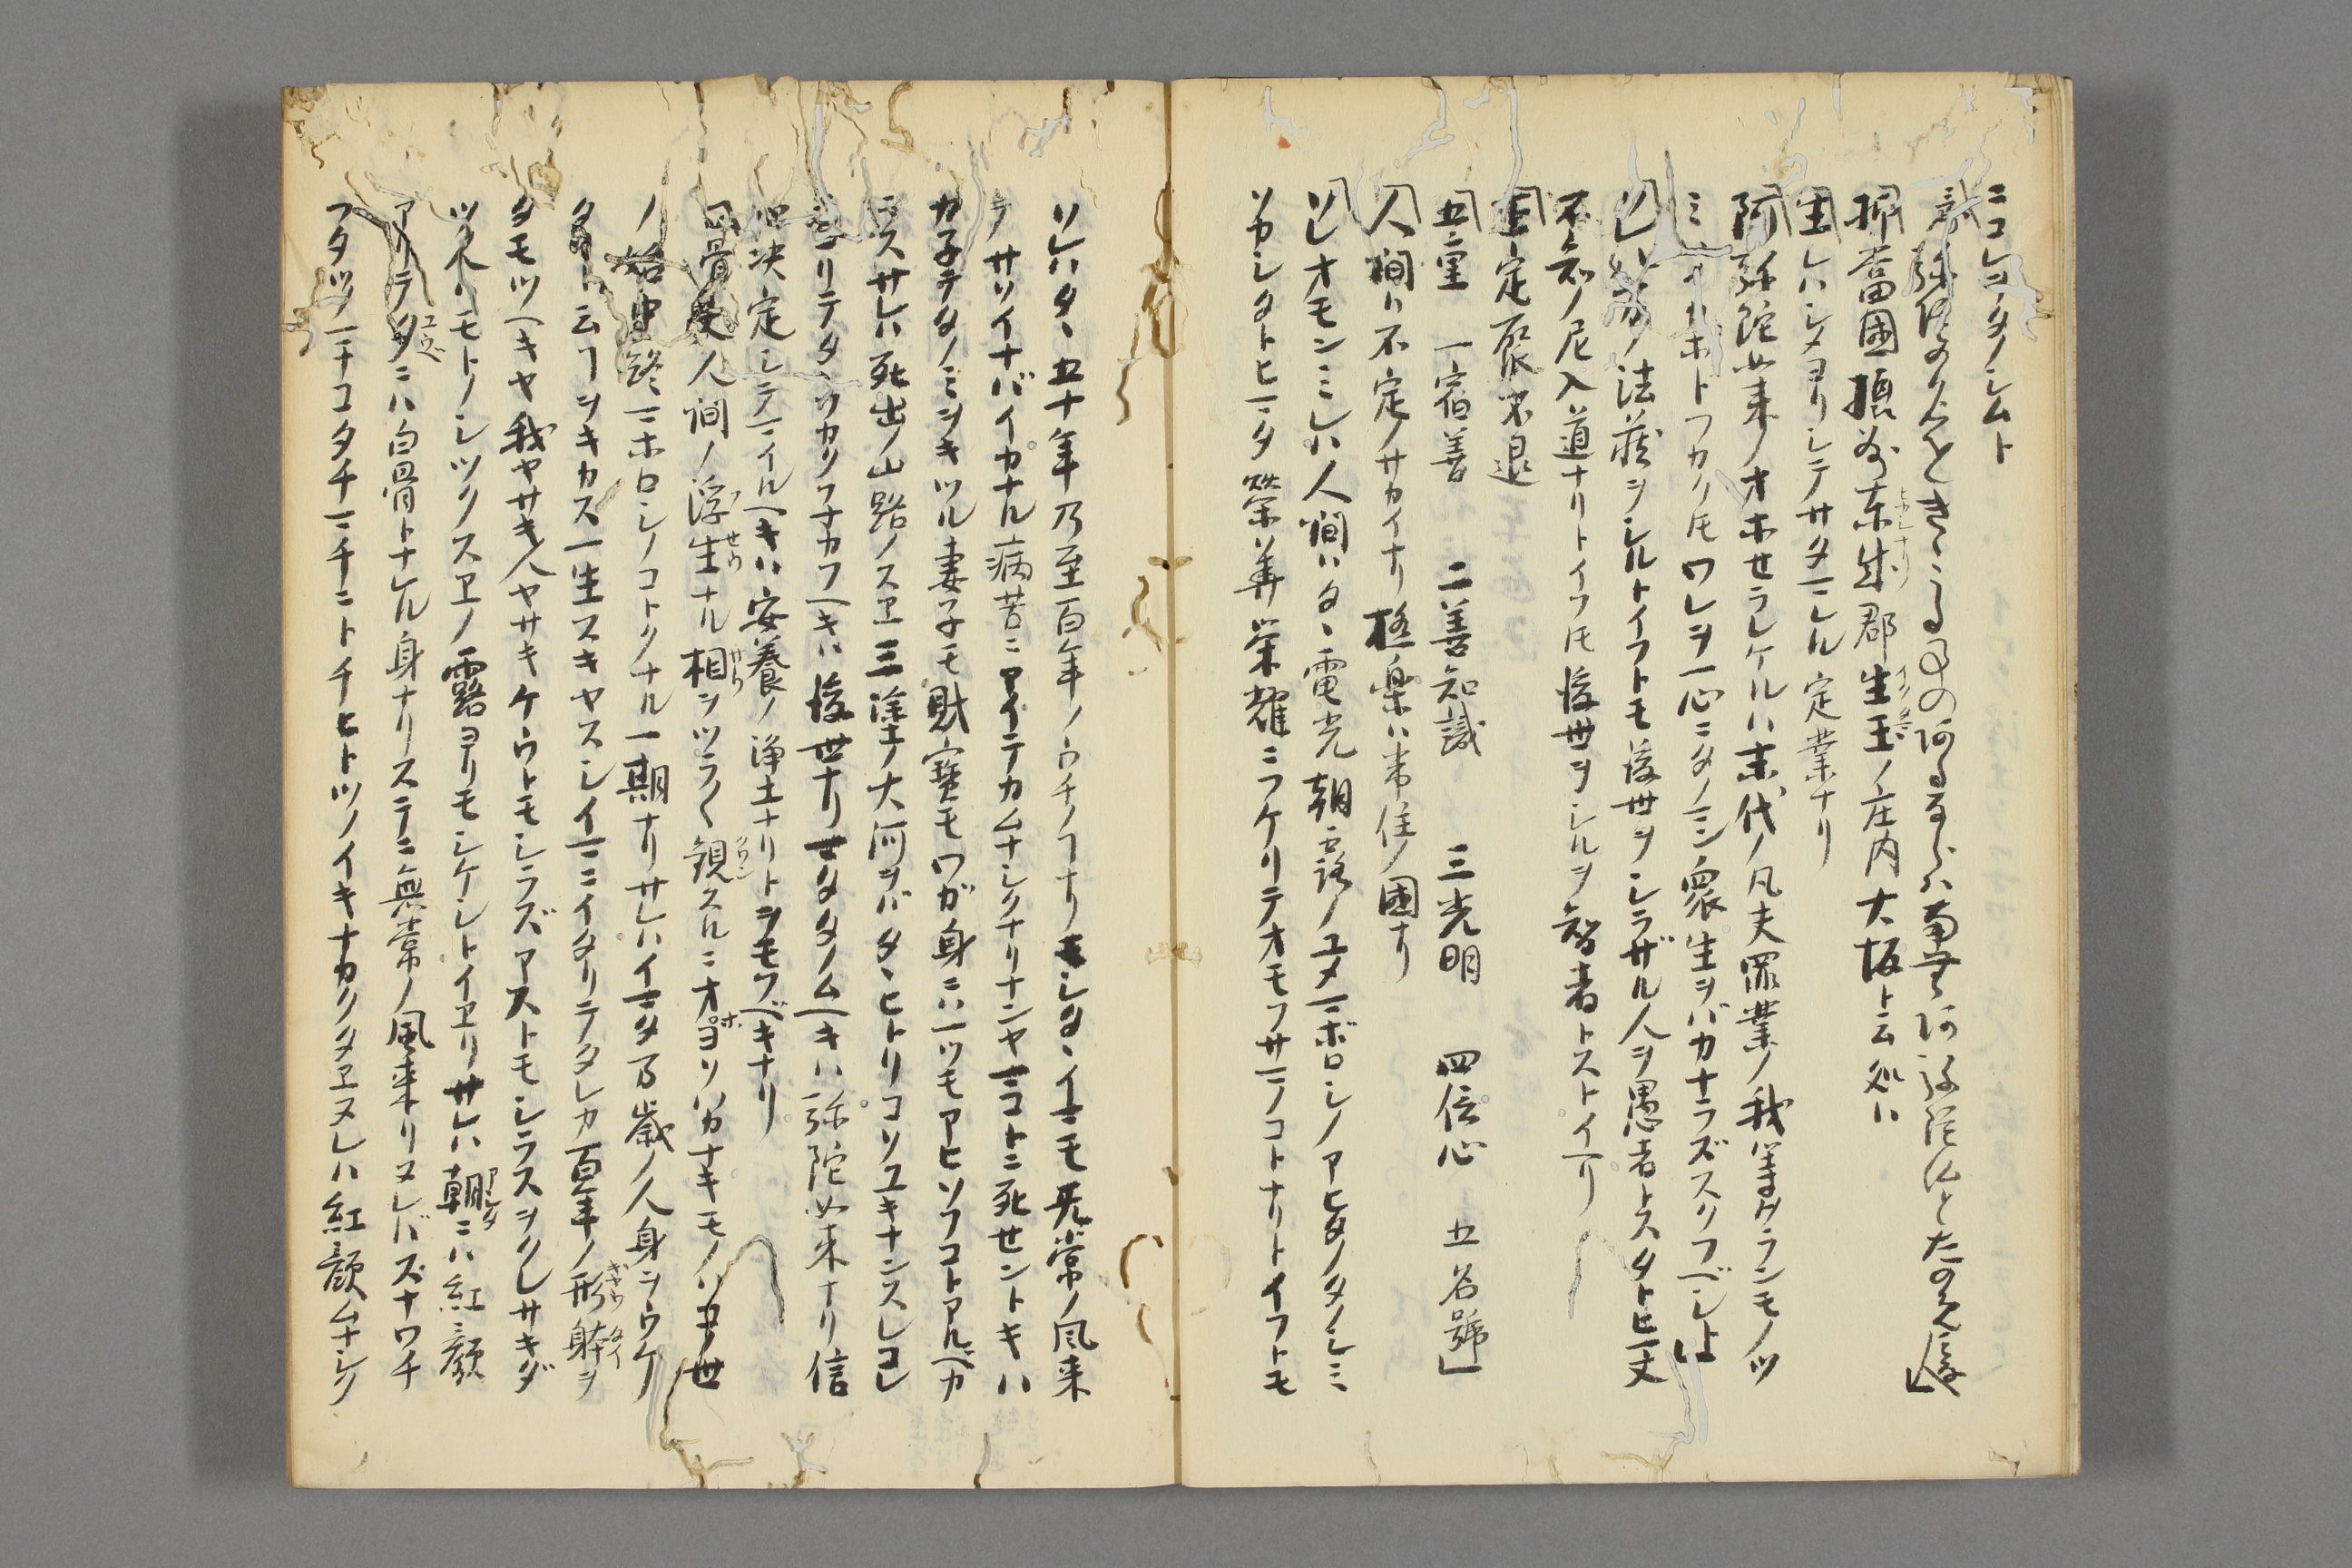 ニコレヲタノシムト
弥陀の名をきくことの
抑當國攝州東成郡生玉ノ庄内大坂ト云処ハ
生レハシメヨリシテサタマレル定業ナリ
阿弥陀如来ノオホセラレケルハ末代ノ凡夫罪業ノ我等タランモノツ
ミハイカホトフカクトモワレヲ一心ニタノミン衆生ヲバカナラズスクフベシト
八万ノ法蔵ヲシルトイフトモ後世ヲシラザル人ヲ愚者トスタトヒ一文
不知ノ尼入道ナリトイフトモ後世ヲシルヲ智者トストイヘリ
正定聚不退
五重　一宿善　二善知識　三光明　四信心　五名號
人間ハ不定ノサカイナリ極楽ハ常住ノ國ナリ
ソレオモンミレハ人間ハタヽ電光朝露ノユメマホロシノアヒタノタノシミ
ソカシタトヒマタ榮華榮耀ニフケリテオモフサマノコトナリトイフトモ
ソレハタヽ五十年乃至百年ノウチノコトナリモシタヽイマモ无常ノ風来
テサソイナバイカナル病苦ニアイテカムナシクナリナンヤマコトニ死セントキハ
カ子テタノミヲキツル妻子モ財寳モワガ身ニハ一ツモアヒソフコトアルベカ
ラスサレハ死出ノ山路ノスヱ三塗ノ大河ヲバタヽヒトリコソユキナンスレコレ
ニヨリテタヽフカクネカフヘキハ後世ナリマタタノムヘキハ弥陀如来ナリ信
心決定シテマイルヘキハ安養ノ浄土ナリトヲモフベキナリ
夫人間ノ浮生ナル相ヲツラ〱観スルニオホヨソハカナキモノハコノ世
ノ始中終マホロシノコトクナル一期ナリサレハイマタ万歳ノ人身ヲウケ
タリト云コトヲキカス一生スキヤスシイマニイタリテタレカ百年ノ形躰ヲ
タモツヘキヤ我ヤサキ人ヤサキケウトモシラズアストモシラスヲクレサキダ
ツ人ハモトノシツクスヱノ露ヨリモシケシトイヱリサレハ朝ニハ紅顔
アリテタニハ白骨トナレル身ナリステニ無常ノ風来リヌレバスナワチ
フタツノマナコタチマチニトチヒトツノイキナカクタヱヌレハ紅顔ムナシク